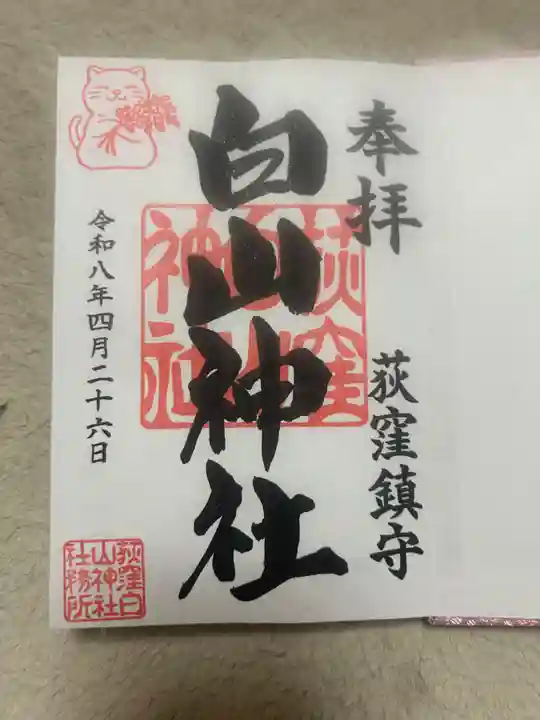 奉拝
荻窪鎮守
白山神社
荻窪
白山
神社
令和八年四月二十六日
荻窪白
山神社
社務所